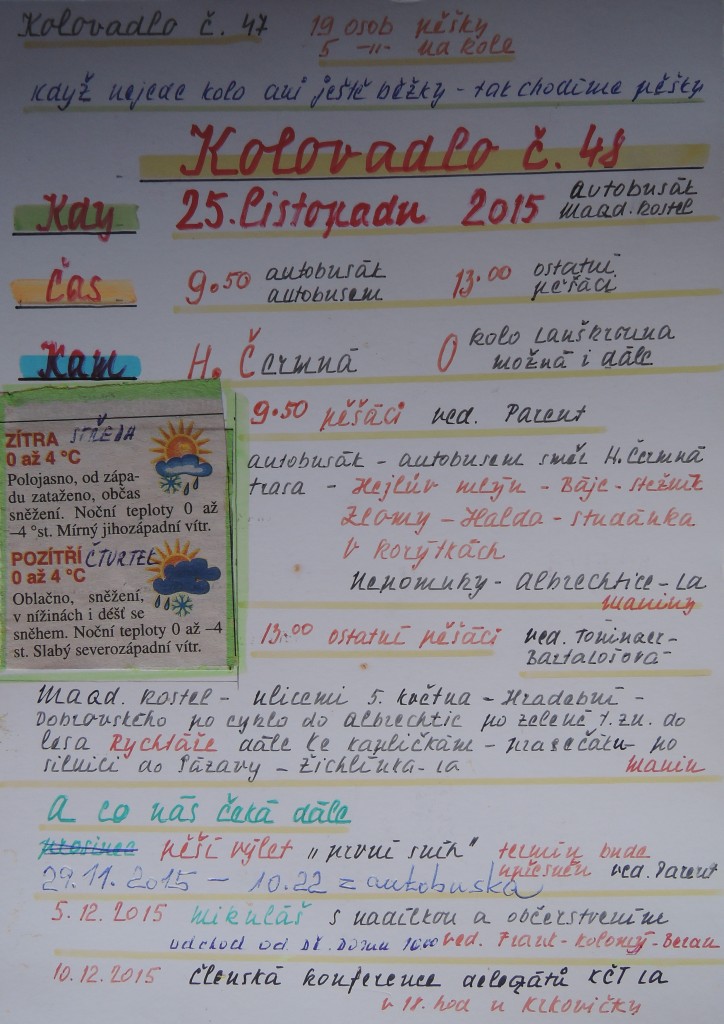 Kolovadlo č. 47 19 osob pěšky
5 -"- na kole
Když nejede kolo ani ještě běžky - tak chodíme pěšky
Kolovadlo č. 48
Kdy 25. listopadu 2015 autobusák
maad. kostel
Čas 9.50 autobusák 13.00 ostatní
autobusem pěšáci
Kam H. Čermná O kolo Lanškrouna
možná i dále
9.50 pěšáci ved. Parent
autobusák - autobusem směr H. Čermná
trasa - Hejlův mlýn - Báje - stežník
Zlomy - Halda - studánka
v korýtkách
Nepomuky - Albrechtice - LA
maniny
ZÍTRA STŘEDA
0 až 4 °C
Polojasno, od západu
zataženo, občas
sněžení. Noční teploty 0 až
–4 °st. Mírný jihozápadní vítr.
POZÍTŘÍ ČTVRTEK
0 až 4 °C
Oblačno, sněžení,
v nížinách i déšť se
sněhem. Noční teploty 0 až –4
st. Slabý severozápadní vítr.
13.00 ostatní pěšáci ved.
Bartalošová
maad. kostel - ulicemi 5. května - Hradební -
Dobrovského po cyklo do Albrechtic po zelené t. zn. do
lesa Rychtáře dále ke kapličkám - prasečáku po
silnici do Sázavy - Žichlínka - LA manin
A co nás čeká dále
prosinec pěší výlet „první sníh" termín bude
upřesněn ved. Parent
29.11. 2015 - 10.22 z autobusáku
5.12.2015 mikuláš s nadílkou a občerstvením
odchod od Dř. Domu 1000 ved. Frank - Kolomý - Beran
10.12.2015 členská konference delegátů KČT LA
v 18. hod u Krkovičky